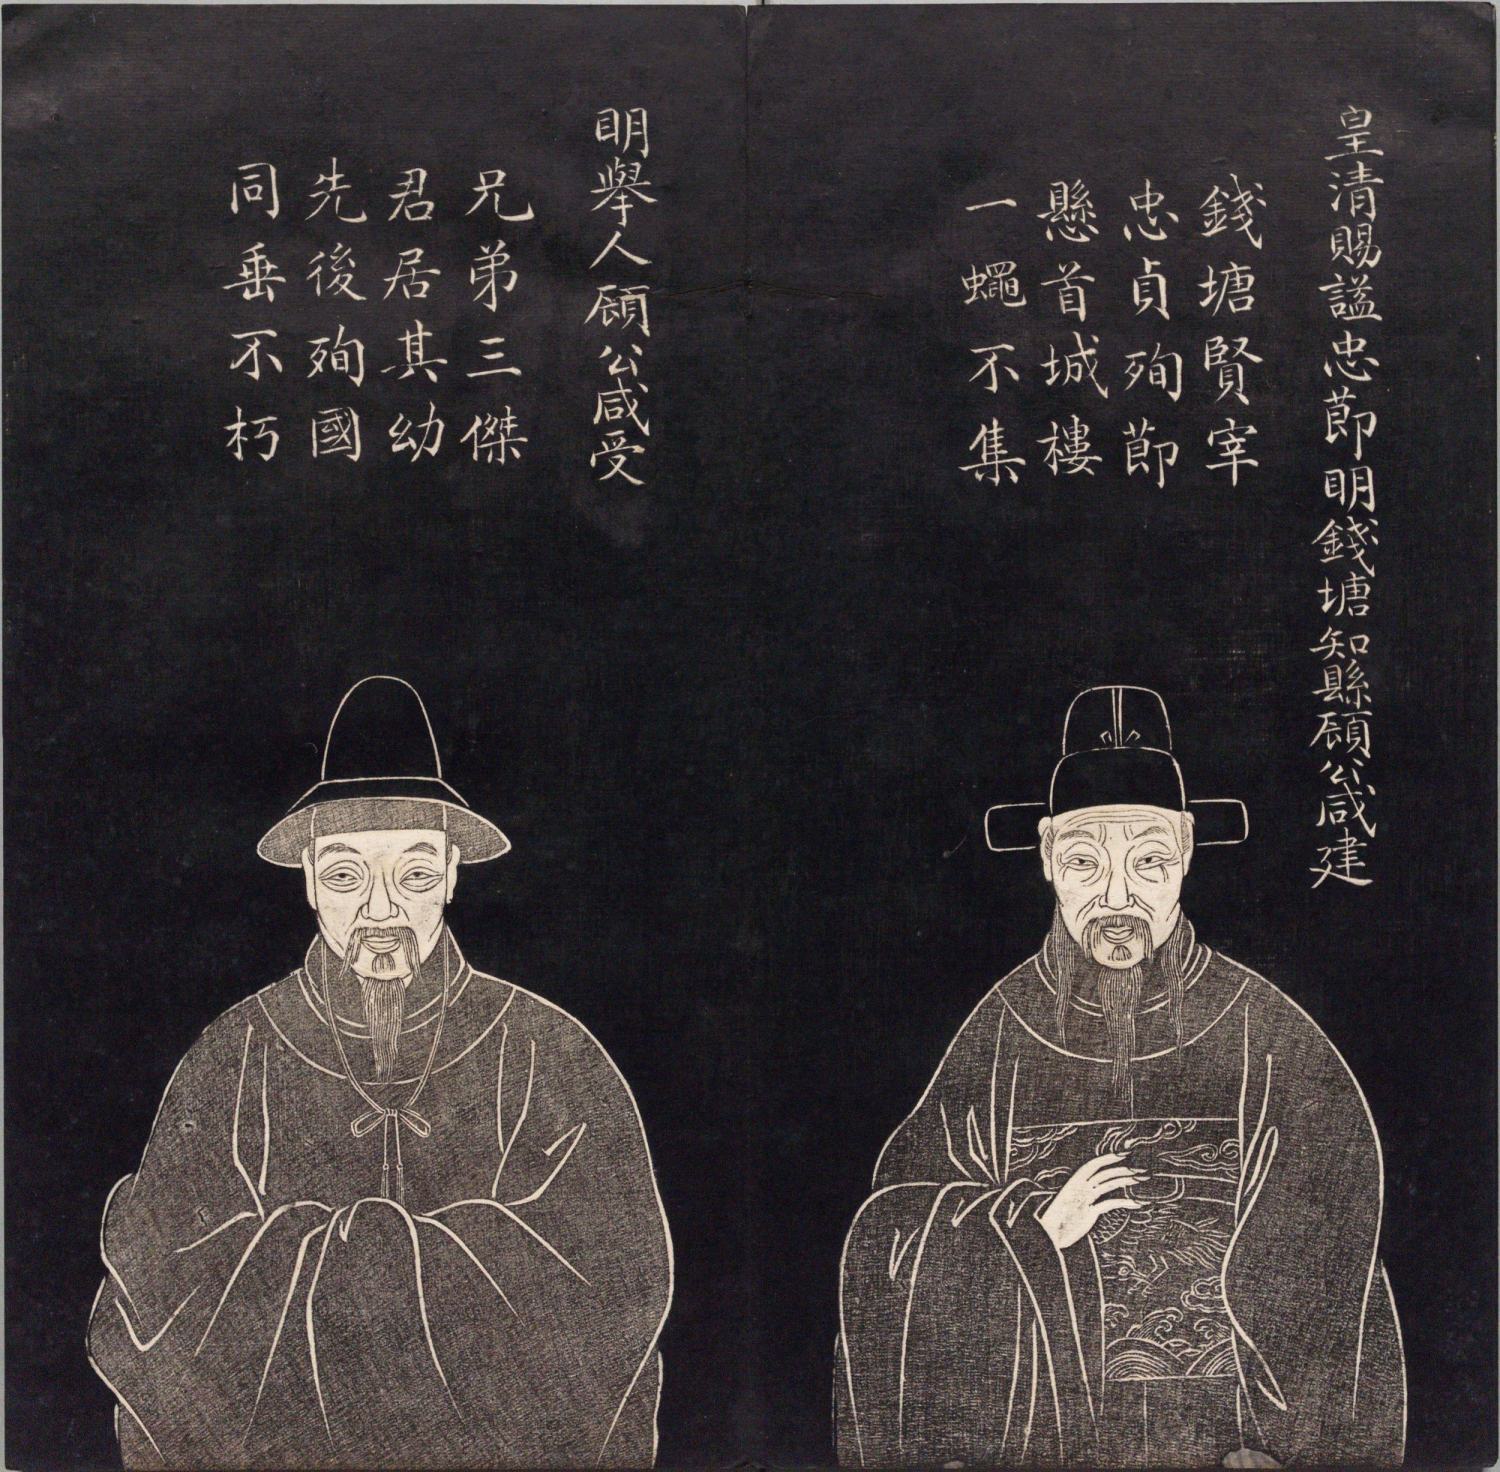 皇清賜謚忠節明錢塘知縣顧公咸建
錢塘賢宰
忠貞殉節
懸首城樓
一蠅不集
明舉人顧公咸受
兄弟三傑
君居其幼
先後殉國
同垂不朽